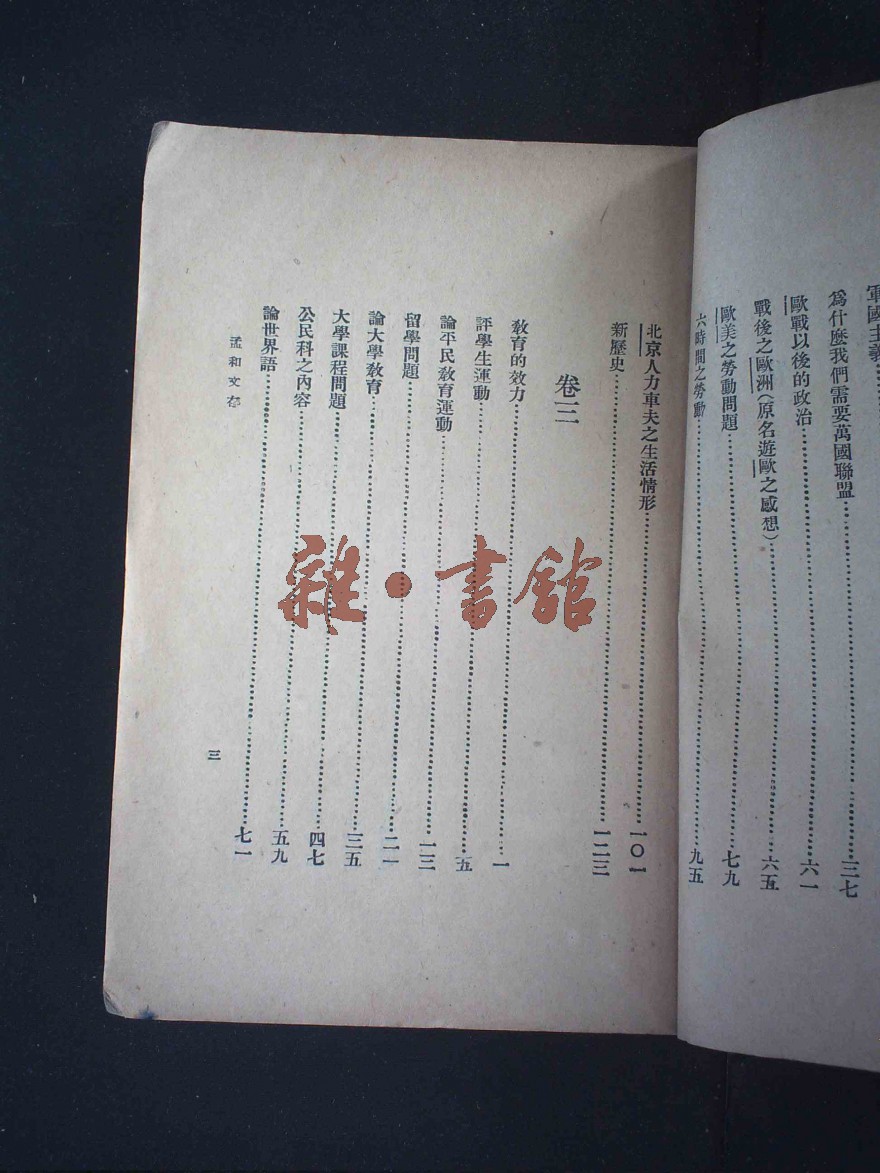 軍國主義
爲什麼我們需要萬國聯盟……三七
歐戰以後的政治……六一
戰後之歐洲（原名遊歐之感想）……六五
歐美之勞動問題……七九
六時間之勞動……九五
北京人力車夫之生活情形……一〇一
新歷史……一二三
卷三
教育的效力……一
評學生運動……五
論平民教育運動……一三
留學問題……二一
論大學教育……三五
大學課程問題……四七
公民科之內容……五九
論世界語……七一
孟和文存
三
雜·書館